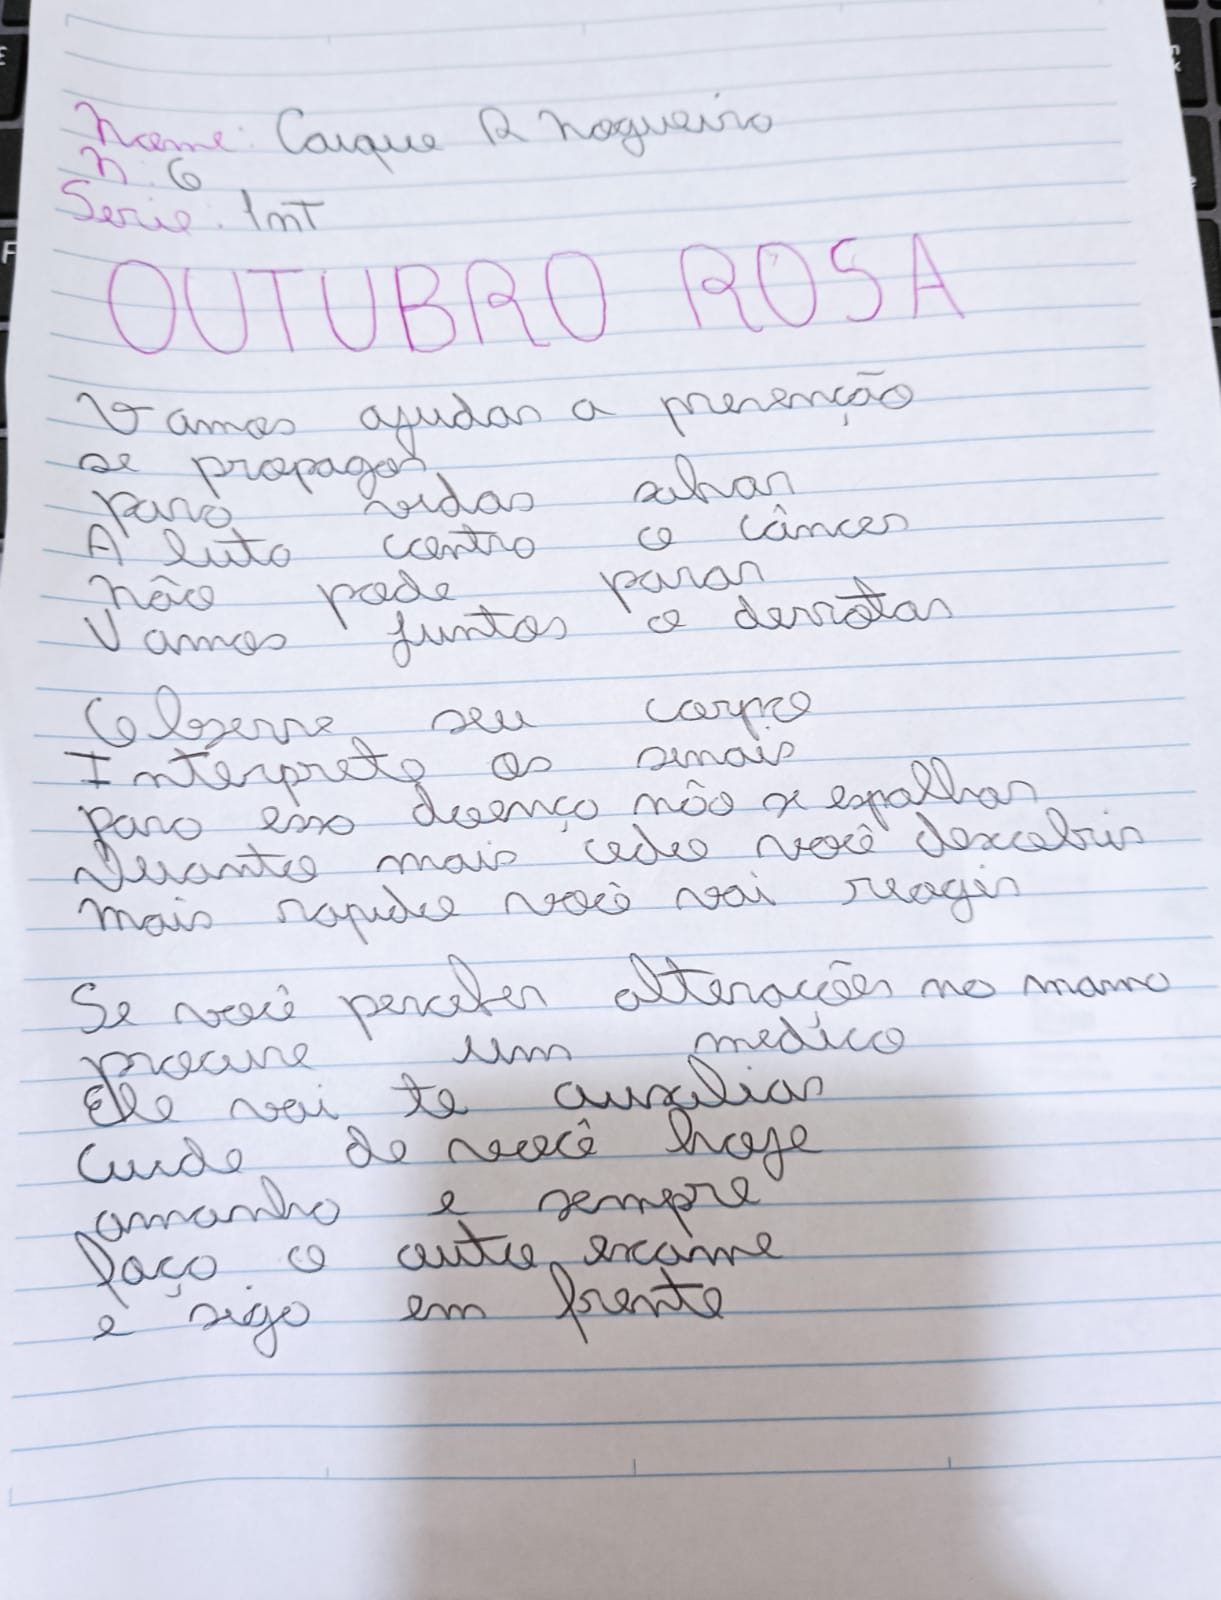 Nome: Caique R Nogueira
N: 6
Serie: 1mT
OUTUBRO ROSA
Vamos ajudar a prevenção
se propagar
para vidas salvar
A luta contra o câncer
não pode parar
Vamos juntos o derrotar
Observe seu corpo
Interprete os sinais
para essa doença não se espalhar
Quanto mais cedo você descobrir
mais rapido você vai reagir
Se você perceber alterações na mama
procure um medico
Ele vai te auxiliar
Cuide de você hoje
amanha e sempre
faça o auto exame
e siga em frente